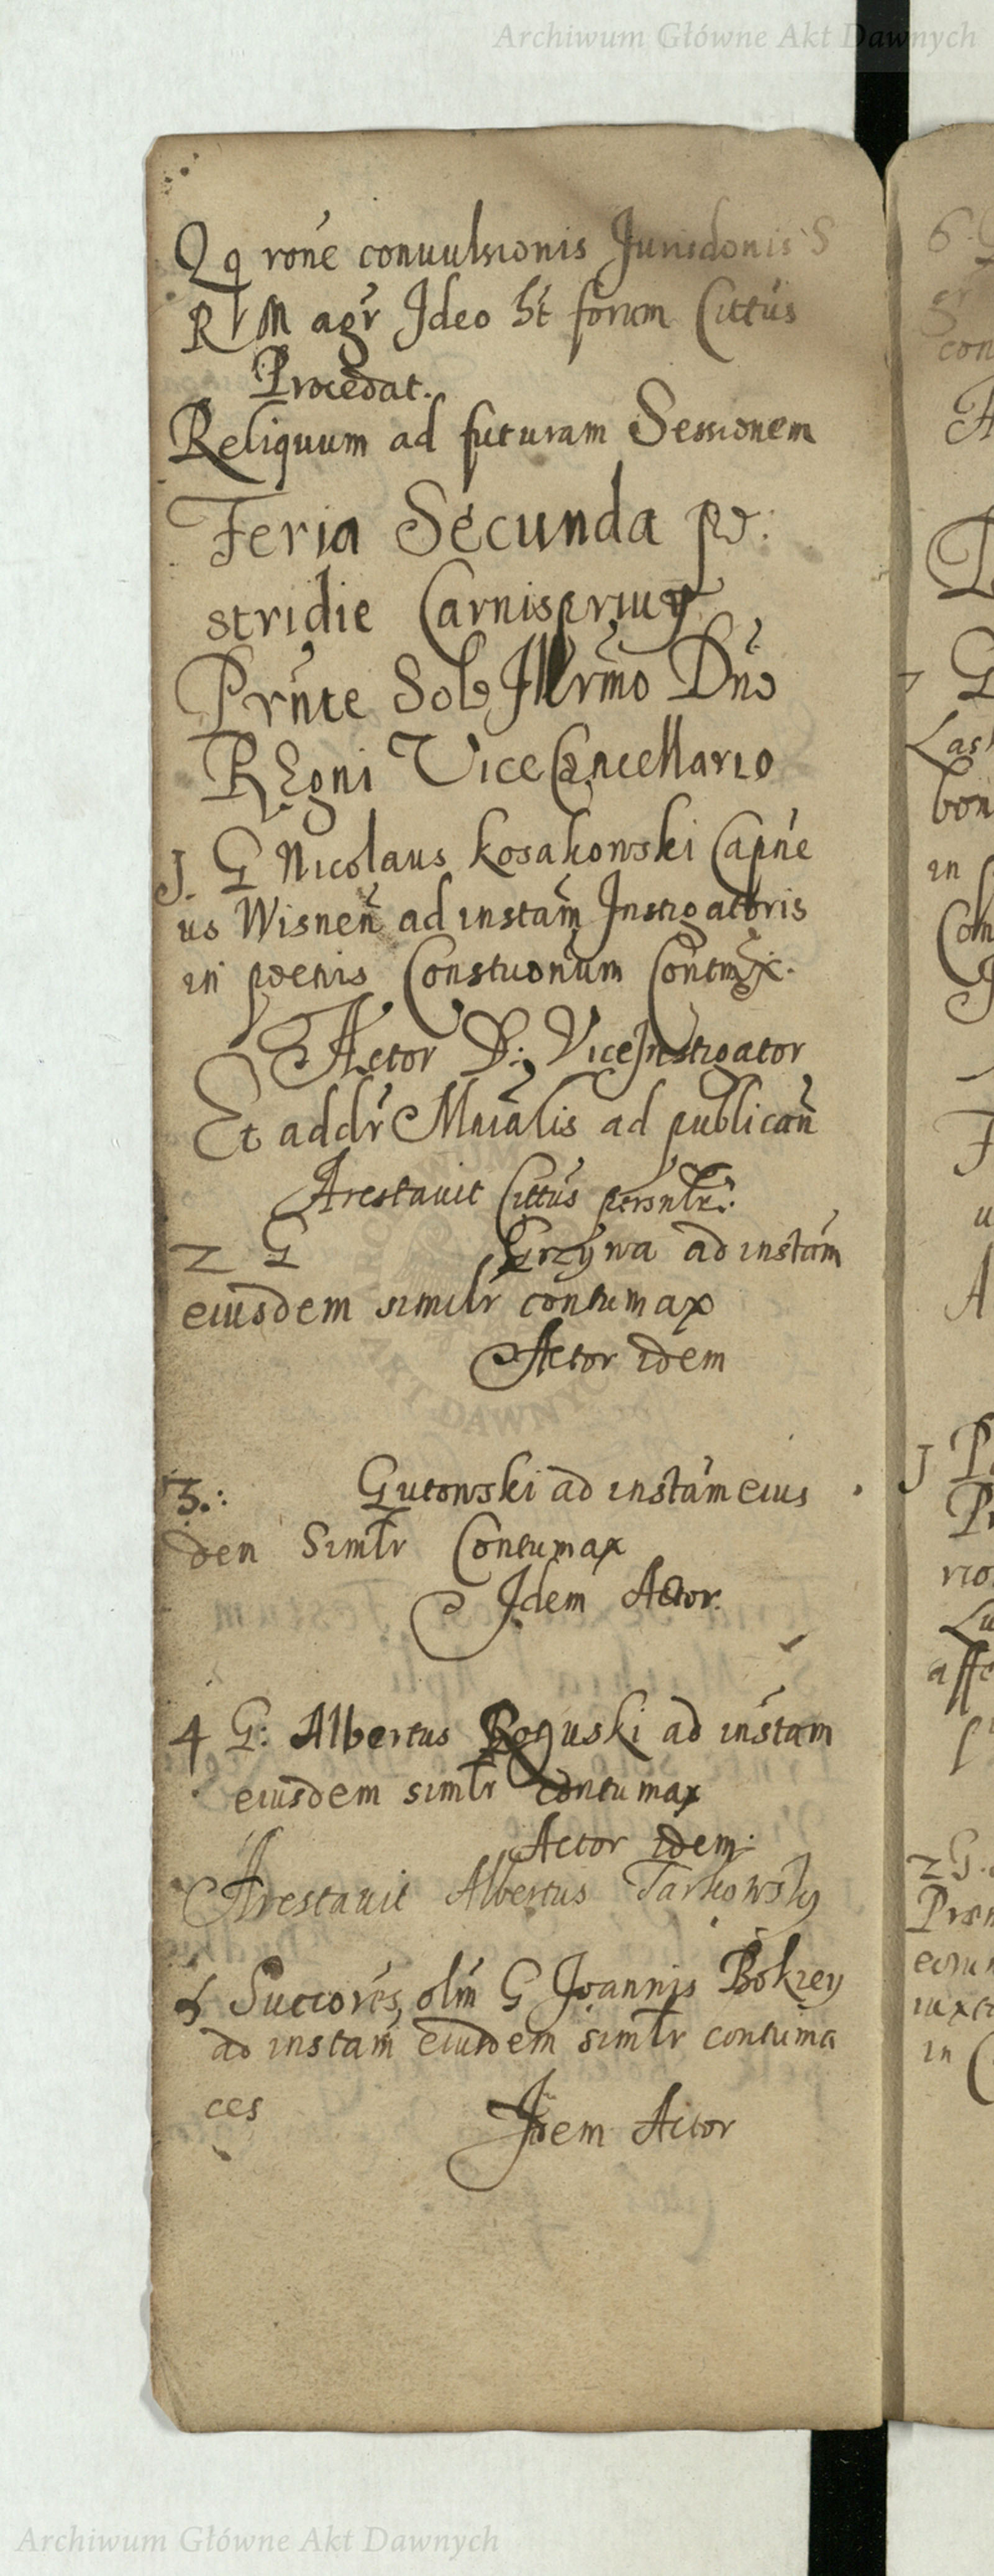 Archiwum Główne Akt Dawnych
Qq rone convulsionis Jurisdonis S
R M agr Ideo ht forum Cittus
Procedat.
Reliquum ad futuram Sessionem
Feria Secunda po:
stridie Carnisprivy
Prnte Sole Illrmo Dno
REgni ViceCancellario
J. G Nicolaus Kosakowski Capne
us Wisnen ad instam Instigatoris
in poenis Constuonum Contmx.
Actor D: ViceInstigator
Et addr Mnialis ad publican
Arestavit Cittus personlr:
2 G Grzywa ad instam
eiusdem similr contumax
Actor idem
3.: Gutowski ad instam eius
dem Simlr Contumax
Idem Actor.
4 G: Albertus Roguski ad instam
eiusdem simlr contumax
Actor idem:
Arestavit Albertus Tarkowsky
5 Succores, olim G Joannis Bokrey
ad instam eiusdem simlr contuma
ces
Idem Actor
Archiwum Główne Akt Dawnych